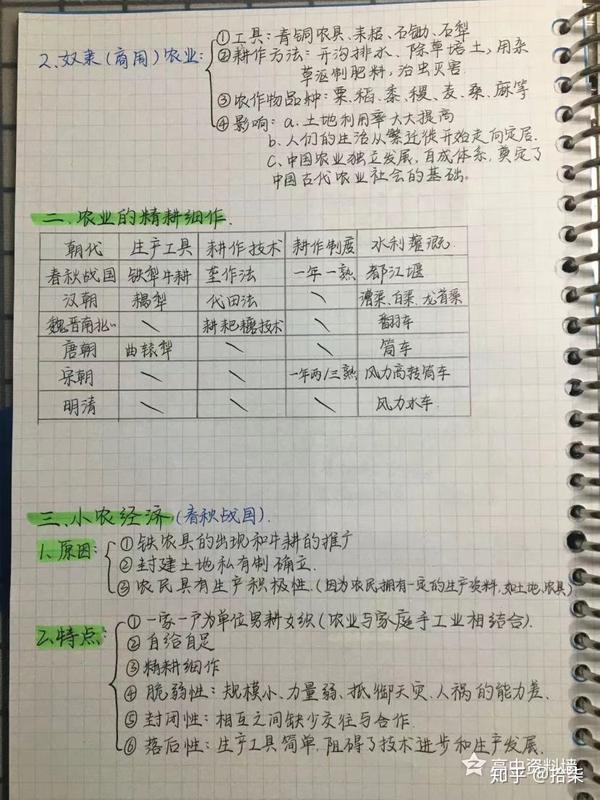 2、奴隶(商周)农业：
① 工具：青铜农具、耒耜、石锄、石犁
② 耕作方法：开沟排水、除草培土，用杂
草沤制肥料，治虫灭害.
③ 农作物品种：粟、稻、黍、稷、麦、桑、麻等
④ 影响：a. 土地利用率大大提高
b. 人们的生活从繁迁徙开始走向定居.
C. 中国农业独立发展，自成体系，奠定了
中国古代农业社会的基础。
二、农业的精耕细作.
朝代 生产工具 耕作技术 耕作制度 水利灌溉
春秋战国 铁犁牛耕 垄作法 一年一熟 都江堰
汉朝 耦犁 代田法 \ 漕渠、白渠、龙首渠
魏晋南北 \ 耕耙耱技术 \ 翻车
唐朝 曲辕犁 \ \ 筒车
宋朝 \ \ 一年两/三熟 风力高转筒车
明清 \ \ \ 风力水车
三、小农经济(春秋战国).
1、原因：
① 铁农具的出现和牛耕的推广
② 封建土地私有制确立.
③ 农民具有生产积极性.(因为农民拥有一定的生产资料，如土地、农具)
2、特点：
① 一家一户为单位男耕女织(农业与家庭手工业相结合).
② 自给自足
③ 精耕细作
④ 脆弱性：规模小、力量弱、抵御天灾、人祸的能力差.
⑤ 封闭性：相互之间缺少交往与合作.
⑥ 落后性：生产工具简单，阻碍了技术进步和生产发展.
高中资料墙
知乎 @拾柒